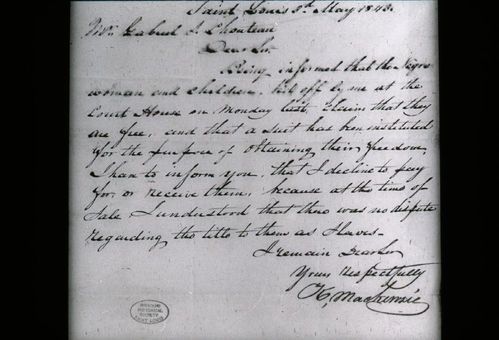 Saint Louis 3d. May 1843.
Mr. Gabriel S. Chouteau
Dear Sir
Being informed that the Negro
woman and children, bid off by me at the
Court House on Monday last, claim that they
are free, and that a suit has been instituted
for the purpose of obtaining their freedom,
I have to inform you, that I decline to pay
for, or receive them, because at the time of
Sale I understood that there was no dispute
regarding the title to them as slaves.
I remain Dear Sir
Yours respectfully
K. MacKenzie
MISSOURI
HISTORICAL
SOCIETY
SAINT LOUIS